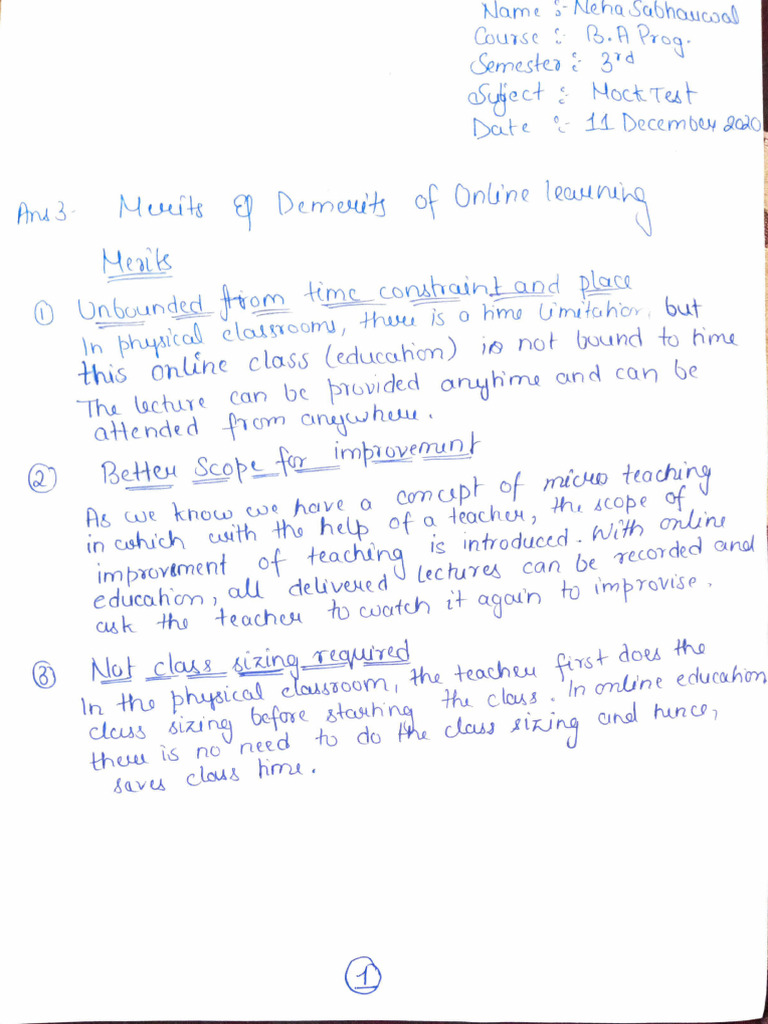 Name :- Neha Sabharwal
Course :- B.A Prog.
Semester :- 3rd
Subject :- Mock Test
Date :- 11 December 2020
Ans 3. Merits & Demerits of Online learning
Merits
① Unbounded from time constraint and place
In physical classrooms, there is a time limitation, but
this online class (education) is not bound to time
The lecture can be provided anytime and can be
attended from anywhere.
② Better Scope for improvement
As we know we have a concept of micro teaching
in which with the help of a teacher, the scope of
improvement of teaching is introduced. With online
education, all delivered lectures can be recorded and
ask the teacher to watch it again to improvise.
③ Not class sizing required
In the physical classroom, the teacher first does the
class sizing before starting the class. In online education
there is no need to do the class sizing and hence,
saves class time.
1